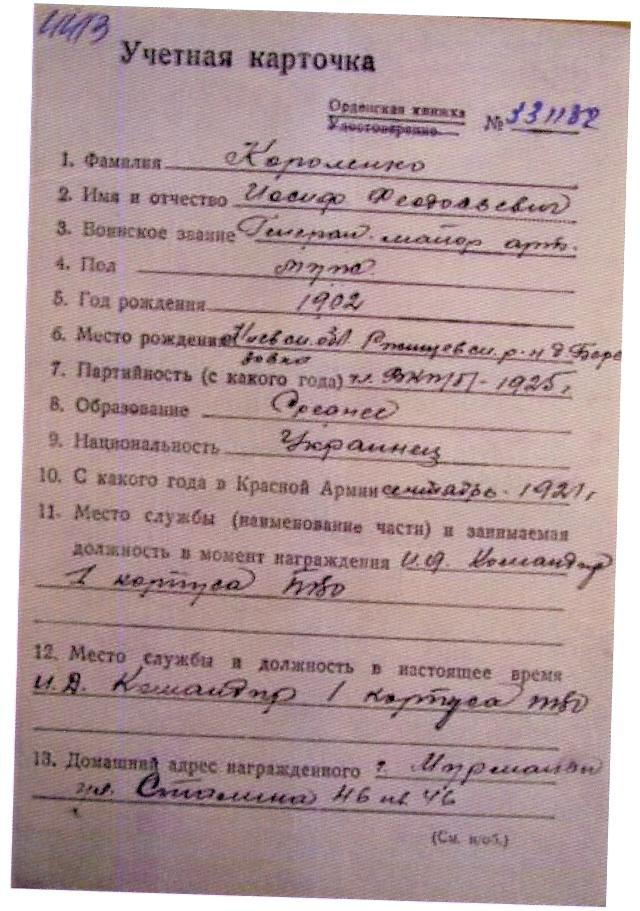 Учетная карточка
Орденская книжка
Удостоверение № 331182
1. Фамилия Короленко
2. Имя и отчество Иосиф Феодосьевич
3. Воинское звание Генерал-майор арт.
4. Пол муж
5. Год рождения 1902
6. Место рождения Киевск. обл Ржищевск. р-н д. Баре
довка
7. Партийность (с какого года) чл. ВКП/б/ - 1925 г
8. Образование Среднее
9. Национальность Украинец
10. С какого года в Красной Армии сентябрь - 1921 г
11. Место службы (наименование части) и занимаемая
должность в момент награждения И.Д. Командир
1 корпуса ПВО
12. Место службы и должность в настоящее время
И.Д. Командир 1 корпуса ПВО
13. Домашний адрес награжденного г. Мурманск
ул. Сталина 46 кв. 46
(См. н/об.)